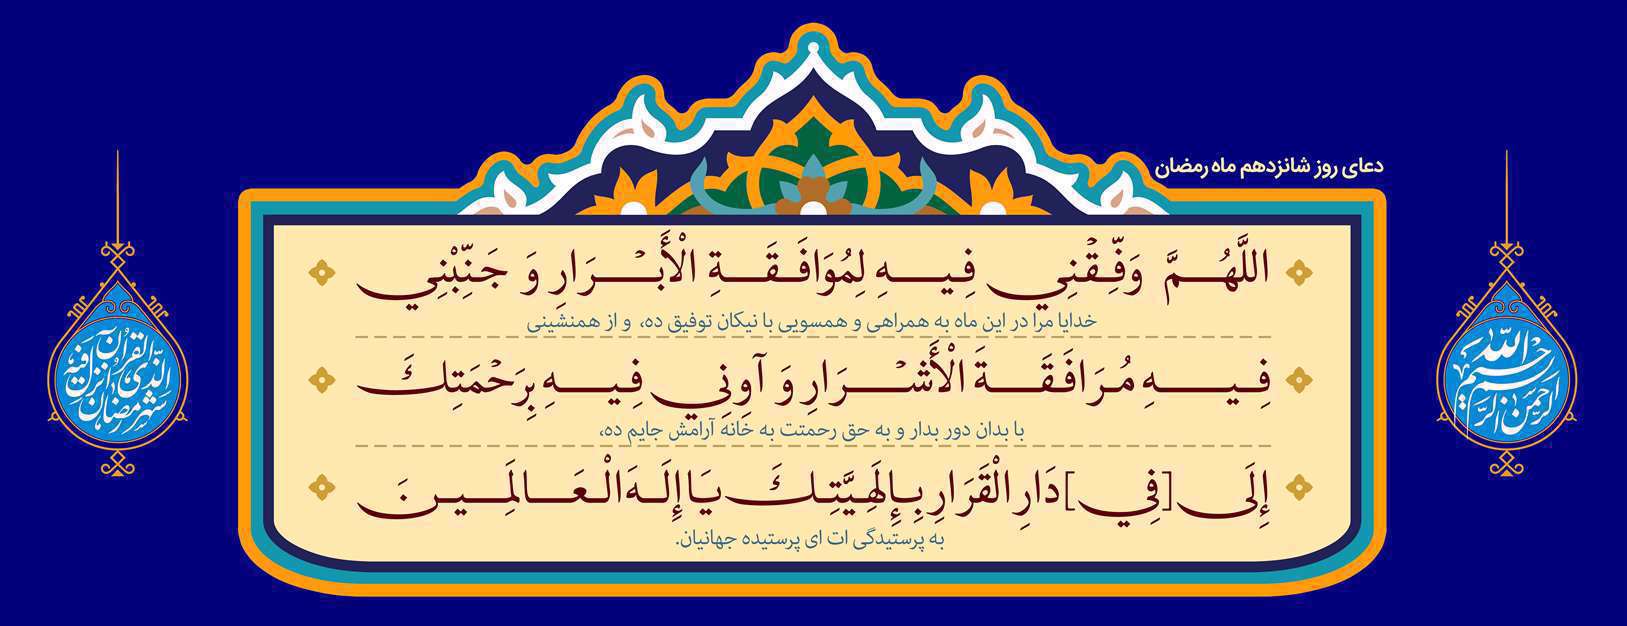 دعای روز شانزدهم ماه رمضان
اللَّهُمَّ وَفِّقْنِي فِيهِ لِمُوَافَقَةِ الْأَبْرَارِ وَ جَنِّبْنِي
خدایا مرا در این ماه به همراهی و همسویی با نیکان توفیق ده، و از همنشینی
فِيهِ مُرَافَقَةَ الْأَشْرَارِ وَ آوِنِي فِيهِ بِرَحْمَتِكَ
با بدان دور بدار و به حق رحمتت به خانه آرامش جایم ده،
إِلَى [فِي] دَارِ الْقَرَارِ بِإِلَهِيَّتِكَ يَا إِلَهَ الْعَالَمِينَ
به پرستیدگی ات ای پرستیده جهانیان.
بسم الله الرحمن الرحیم
شهر رمضان الذی انزل فیه القرآن